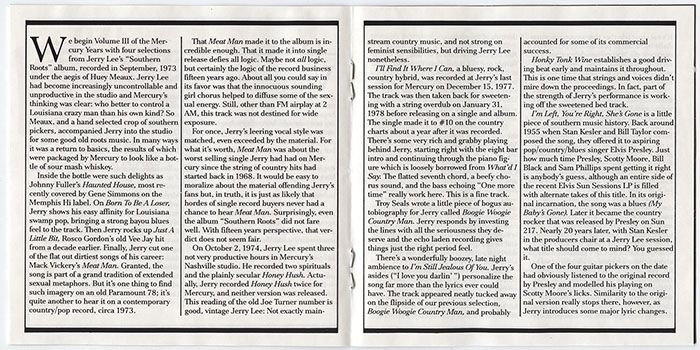 We begin Volume III of the Mer-
cury Years with four selections
from Jerry Lee's "Southern
Roots" album, recorded in September, 1973
under the aegis of Huey Meaux. Jerry Lee
had become increasingly uncontrollable and
unproductive in the studio and Mercury's
thinking was clear: who better to control a
Louisiana crazy man than his own kind? So
Meaux, and a hand selected crop of southern
pickers, accompanied Jerry into the studio
for some good old roots music. In many ways
it was a return to basics, the results of which
were packaged by Mercury to look like a bot-
tle of sour mash whiskey.
Inside the bottle were such delights as
Johnny Fuller's Haunted House, most re-
cently covered by Gene Simmons on the
Memphis Hi label. On Born To Be A Loser,
Jerry shows his easy affinity for Louisiana
swamp pop, bringing a strong bayou blues
feel to the track. Then Jerry rocks up Just A
Little Bit, Rosco Gordon's old Vee Jay hit
from a decade earlier. Finally, Jerry cut one
of the flat out dirtiest songs of his career:
Mack Vickery's Meat Man. Granted, the
song is part of a grand tradition of extended
sexual metaphors. But it's one thing to find
such imagery on an old Paramount 78; it's
quite another to hear it on a contemporary
country/pop record, circa 1973.
That Meat Man made it to the album is in-
credible enough. That it made it into single
release defies all logic. Maybe not all logic,
but certainly the logic of the record business
fifteen years ago. About all you could say in
its favor was that the innocuous sounding
girl chorus helped to diffuse some of the sex-
ual energy. Still, other than FM airplay at 2
AM, this track was not destined for wide
exposure.
For once, Jerry's leering vocal style was
matched, even exceeded by the material. For
what it's worth, Meat Man was about the
worst selling single Jerry had had on Mer-
cury since the string of country hits had
started back in 1968. It would be easy to
moralize about the material offending Jerry's
fans but, in truth, it is just as likely that
hordes of single record buyers never had a
chance to hear Meat Man. Surprisingly, even
the album "Southern Roots" did not fare
well. With fifteen years perspective, that ver-
dict does not seem fair.
On October 2, 1974, Jerry Lee spent three
not very productive hours in Mercury's
Nashville studio. He recorded two spirituals
and the plainly secular Honey Hush. Actu-
ally, Jerry recorded Honey Hush twice for
Mercury, and neither version was released.
This reading of the old Joe Turner number is
good, vintage Jerry Lee: Not exactly main-
stream country music, and not strong on
feminist sensibilities, but driving Jerry Lee
nonetheless.
I'll Find It Where I Can, a bluesy, rock,
country hybrid, was recorded at Jerry's last
session for Mercury on December 15, 1977.
The track was then taken back for sweeten-
ing with a string overdub on January 31,
1978 before releasing on a single and album.
The single made it to #10 on the country
charts about a year after it was recorded.
There's some very rich and grabby playing
behind Jerry, starting right with the eight bar
intro and continuing through the piano fig-
ure which is loosely borrowed from What'd I
Say. The flatted seventh chord, a beefy cho-
rus sound, and the bass echoing "One more
time" really work here. This is a fine track.
Troy Seals wrote a little piece of bogus au-
tobiography for Jerry called Boogie Woogie
Country Man. Jerry responds by investing
the lines with all the seriousness they de-
serve and the echo laden recording gives
things just the right period feel.
There's a wonderfully boozey, late night
ambience to I'm Still Jealous Of You. Jerry's
asides ("I love you darlin'") personalize the
song far more than the lyrics ever could
have. The track appeared neatly tucked away
on the flipside of our previous selection,
Boogie Woogie Country Man, and probably
accounted for some of its commercial
success.
Honky Tonk Wine establishes a good driv-
ing beat early and maintains it throughout.
This is one time that strings and voices didn't
mire down the proceedings. In fact, part of
the strength of Jerry's performance is work-
ing off the sweetened bed track.
I'm Left, You're Right, She's Gone is a little
piece of southern music history. Back around
1955 when Stan Kesler and Bill Taylor com-
posed the song, they offered it to aspiring
pop/country/blues singer Elvis Presley. Just
how much time Presley, Scotty Moore, Bill
Black and Sam Phillips spent getting it right
is anybody's guess, although an entire side of
the recent Elvis Sun Sessions LP is filled
with alternate takes of this title. In its origi-
nal incarnation, the song was a blues (My
Baby's Gone). Later it became the country
rocker that was released by Presley on Sun
217. Nearly 20 years later, with Stan Kesler
in the producers chair at a Jerry Lee session,
what title should come to mind? You guessed
it.
One of the four guitar pickers on the date
had obviously listened to the original record
by Presley and modelled his playing on
Scotty Moore's licks. Similarity to the origi-
nal version really stops there, however, as
Jerry introduces some major lyric changes.